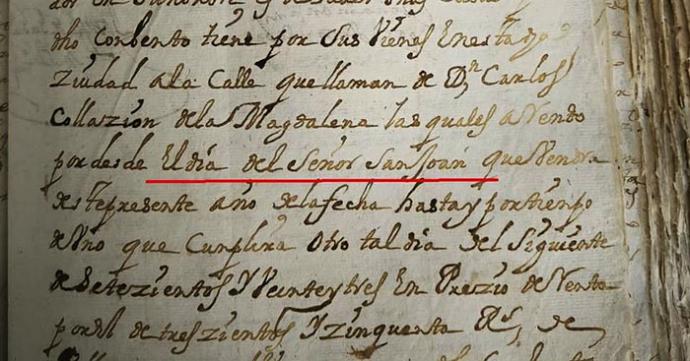 dho Conbento tiene por Sus Vienes En esta
ziudad a la Calle que llaman de Dn Carlos
Collazion de la Magdalena las quales arrendo
por desde El dia del Señor San Joan que Vendra
deste presente año de la fecha hasta y por tienpo
de Uno que Cunplira Otro tal dia del Siguiente
de Setezientos Y Veinte y tres En Prezio de Renta
por el de treszientos Y zinquenta Rs, de